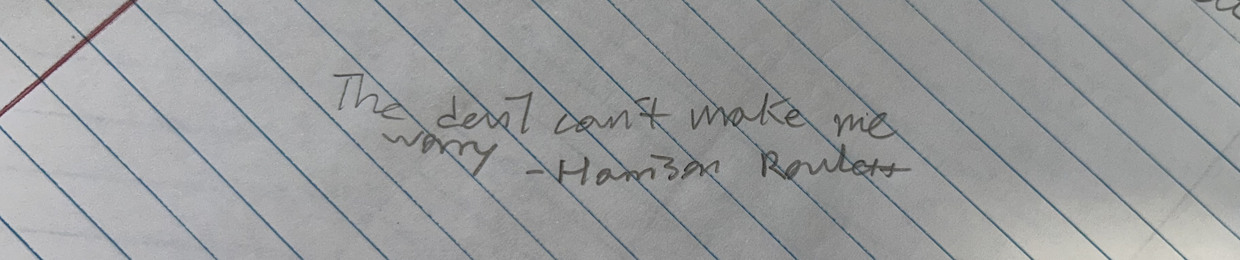 The devil can't make me
worry - Harrison